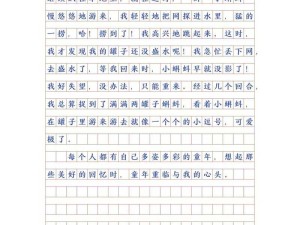 慢悠悠地游来，我轻轻地把网探进水里，猛的
一捞，哈！捞到了！我高兴地跳起来，这时，
我才发现我的罐子还没盛水呢！我急忙丢下网，
去盛水了，等我回来时，小蝌蚪早就没影了！
我后悔极了，没办法，只能重来。经过几个回合，
我总算捉到了满满两罐子蝌蚪，看着小蝌蚪，
在罐子里游来游去就像一个个的小逗号，可爱
极了。
每个人都有自己多姿多彩的童年，想起那
些美好的回忆时，童年重临与我的心头。